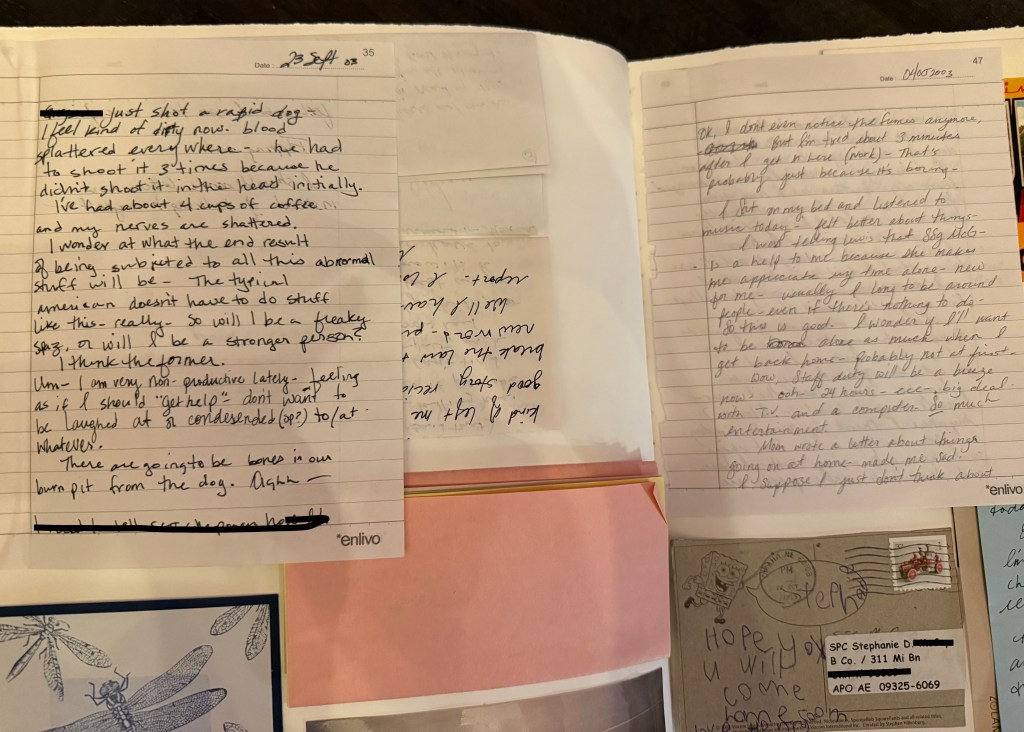 35
Date : 23 Sept 03
just shot a rapid dog -
I feel kind of dirty now. blood
splattered everywhere - he had
to shoot it 3 times because he
didn't shoot it in the head initially.
I've had about 4 cups of coffee
and my nerves are shattered.
I wonder at what the end result
of being subjected to all this abnormal
stuff will be - The typical
american doesn't have to do stuff
like this - really - So will I be a freaky
spaz, or will I be a stronger person?
I think the former.
Um - I am very non-productive lately - feeling
as if I should "get help" don't want to
be laughed at or condesended (sp?) to/at.
whatever.
There are going to be bones in our
burn pit from the dog. Aighh -
enlivo
report - I
We'll hav
new word - p
break the law
good story
kind of left me
47
Date : 04 OCT 2003
ok, I don't even notice the fumes anymore,
But I'm tired about 3 minutes
after I get in here (work) - That's
probably just because it's boring -
I Sat on my bed and listened to
music today - felt better about things -
I was telling that SSg McG -
is a help to me because she makes
me appreciate my time alone - new
for me - usually I long to be around
people - even if there's nothing to do -
So this is good - I wonder if I'll want
to be alone as much when I
get back home - probably not at first -
Wow, Staff duty will be a breeze
now. ooh - 24 hours - eee - big deal -
with T.V. and a computer So much
entertainment
Mom wrote a letter about things
going on at home - made me sad.
I suppose I just don't think about
enlivo
Steph
HOPE YOU
U will
come
home
SPC Stephanie D.
B Co. / 311 Mi Bn
APO AE 09325-6069